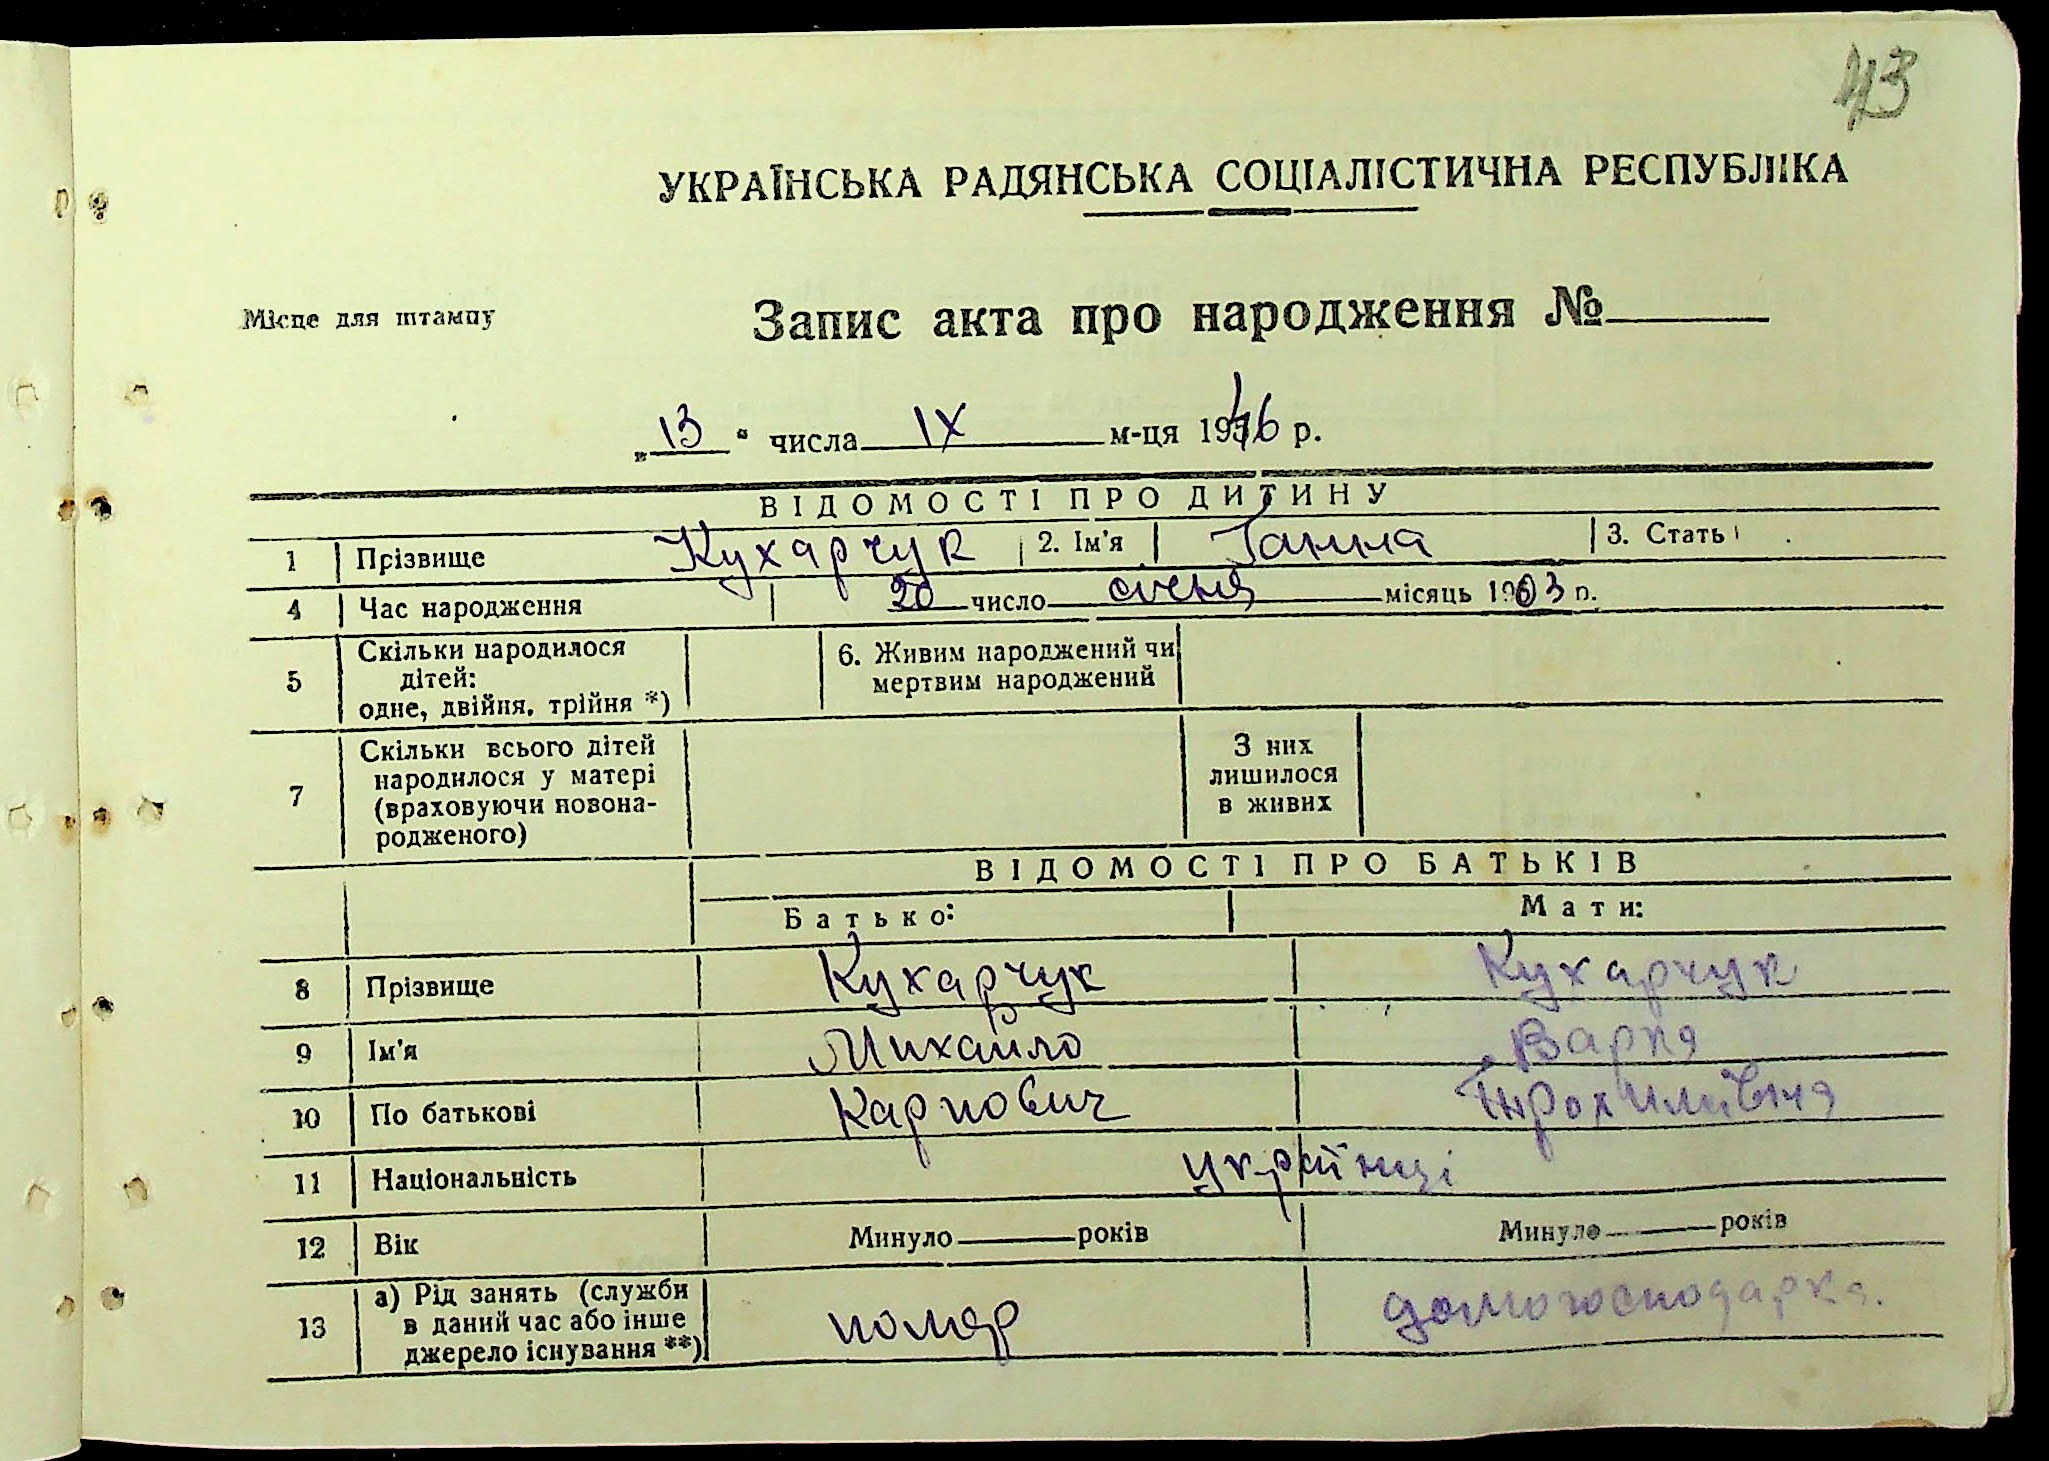 43
УКРАЇНСЬКА РАДЯНСЬКА СОЦІАЛІСТИЧНА РЕСПУБЛІКА
Місце для штампу
Запис акта про народження №
„13“ числа IX м-ця 1946 р.
ВІДОМОСТІ ПРО ДИТИНУ
1 Прізвище Кухарчук 2. Ім'я Ганна 3. Стать
4 Час народження 20 число січня місяць 1903 р.
5 Скільки народилося дітей: одне, двійня, трійня *) 6. Живим народжений чи мертвим народжений
7 Скільки всього дітей народилося у матері (враховуючи новона-родженого) З них лишилося в живих
ВІДОМОСТІ ПРО БАТЬКІВ
Батько: Мати:
8 Прізвище Кухарчук Кухарчук
9 Ім'я Михайло Варка
10 По батькові Карпович Трохимівна
11 Національність українці
12 Вік Минуло років Минуло років
13 а) Рід занять (служби в даний час або інше джерело існування **) помер домогосподарка.